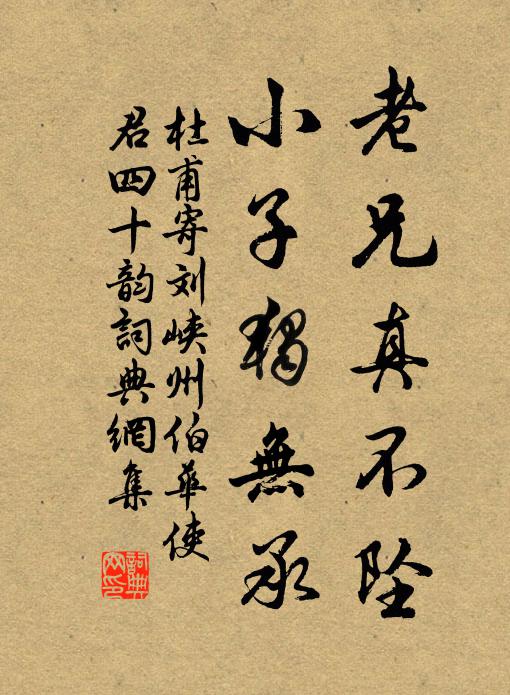 老兄真不坠
小子独無承
杜甫寄刘峡州伯華使
君四十韵詞典網集
詞典
网印